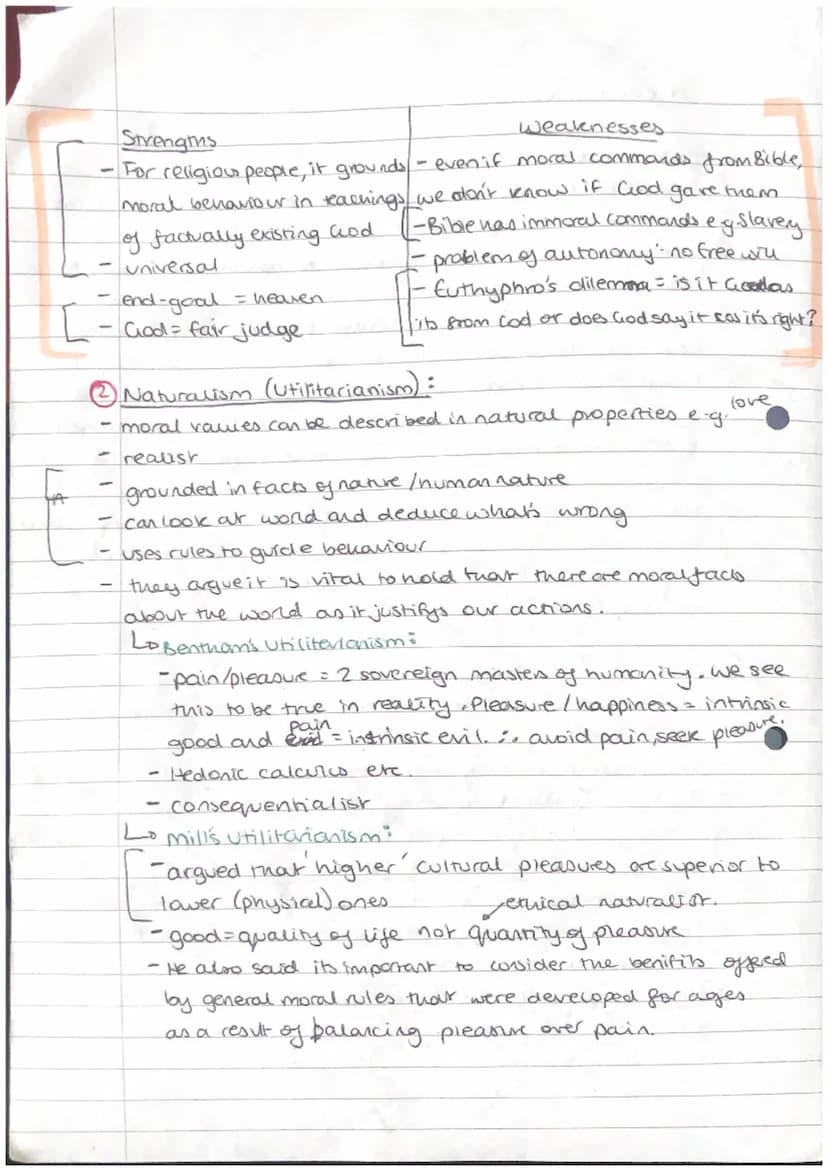 Strengths
- For religious people, it grounds
moral behaviour in teachings
of factually existing God
- universal
- end-goal = heaven
- God = fair judge
Weaknesses
- even if moral commands from Bible,
we don't know if God gave them
- Bible has immoral commands e.g. slavery
- problem of autonomy: no free will
- Euthyphro's dilemma = is it Good as
its from God or does God say it cos it's right?
② Naturalism (Utilitarianism):
- moral values can be described in natural properties e.g. love
- realist
- grounded in facts of nature / human nature
- can look at world and deduce what's wrong
- uses rules to guide behaviour
- they argue it is vital to hold that there are moral facts
about the world as it justifys our actions.
↳ Bentham's Utiliterianism:
- pain/pleasure = 2 sovereign masters of humanity. We see
this to be true in reality. Pleasure / happiness = intrinsic
good and pain = intrinsic evil. ∴ avoid pain, seek pleasure.
- Hedonic calculus etc.
- consequentialist
↳ Mill's Utilitarianism:
- argued that 'higher' cultural pleasures are superior to
lower (physical) ones
ethical naturalist.
- good = quality of life not quantity of pleasure
- He also said its important to consider the benifits offered
by general moral rules that were developed for ages
as a result of balancing pleasure over pain.